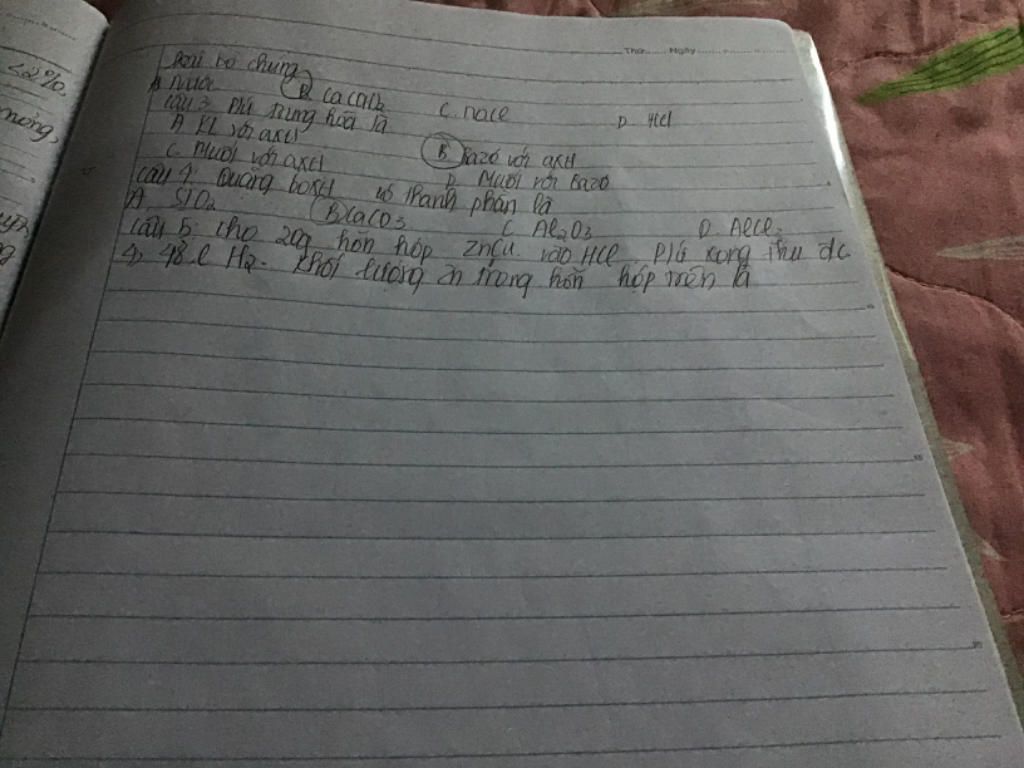 <2%.
Thứ...... Ngày
loại bỏ chúng
A nước B CaCl2 C. nacl D HCl
Câu 3. Pứ trung hòa là
A KL với axit B Bazơ với axit
C. Muối với axit D. Muối với Bazơ
Câu 4: Quặng boxit có thành phần là
A SiO2 B CaCO3 C Al2O3 D. AlCl3
Câu 5: Cho 20g hỗn hợp ZnCu vào HCl. Pứ xong thu đc
4,48.l H2. Khối lượng Zn trong hỗn hợp trên là